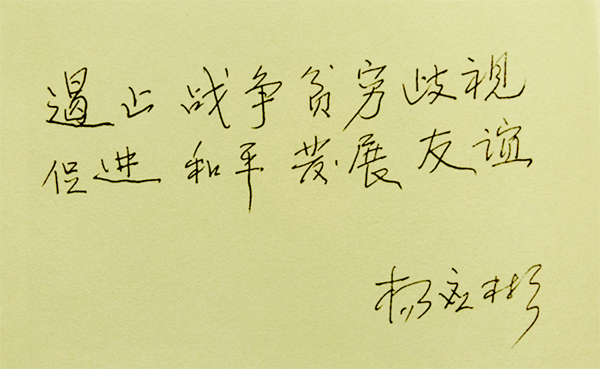 遏止 战争 贫穷 歧视
促进 和平 发展 友谊
杨应彬